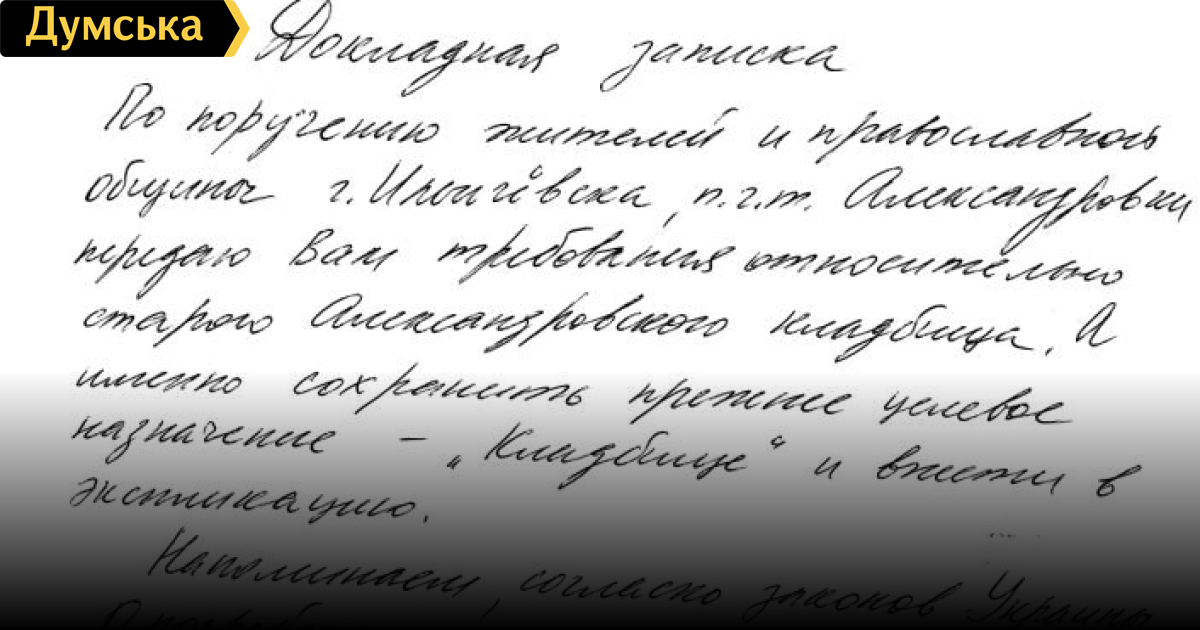 Думська
Докладная записка
По поручению жителей и православной
общины г. Ильичёвска, п.г.т. Александровки
передаю Вам требования относительно
старого Александровского кладбища. А
именно сохранить прежнее целевое
назначение – „Кладбище“ и внести в
экспликацию.
Напоминаем, согласно законов Украины